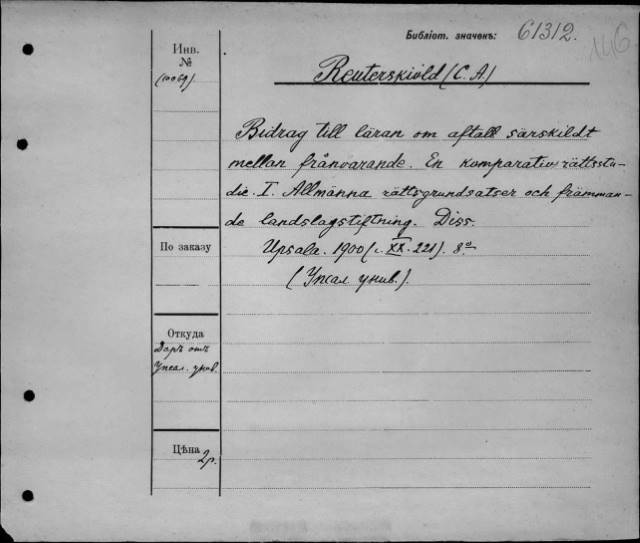 Библіот. значекъ: 61312.
116
Инв.
№
(10069)
Reuterskiöld (C. A)
Bidrag till läran om aftall särskildt
mellan frånvarande. En komparativ rättsstu-
die. I. Allmänna rättsgrundsatser och främman-
de landslagstiftning. Diss.
По заказу
Upsala. 1900 (с. XX. 221). 8º
(Упсал. унив.).
Откуда
Даръ отъ
Упсал. унив.
Цѣна 2р.